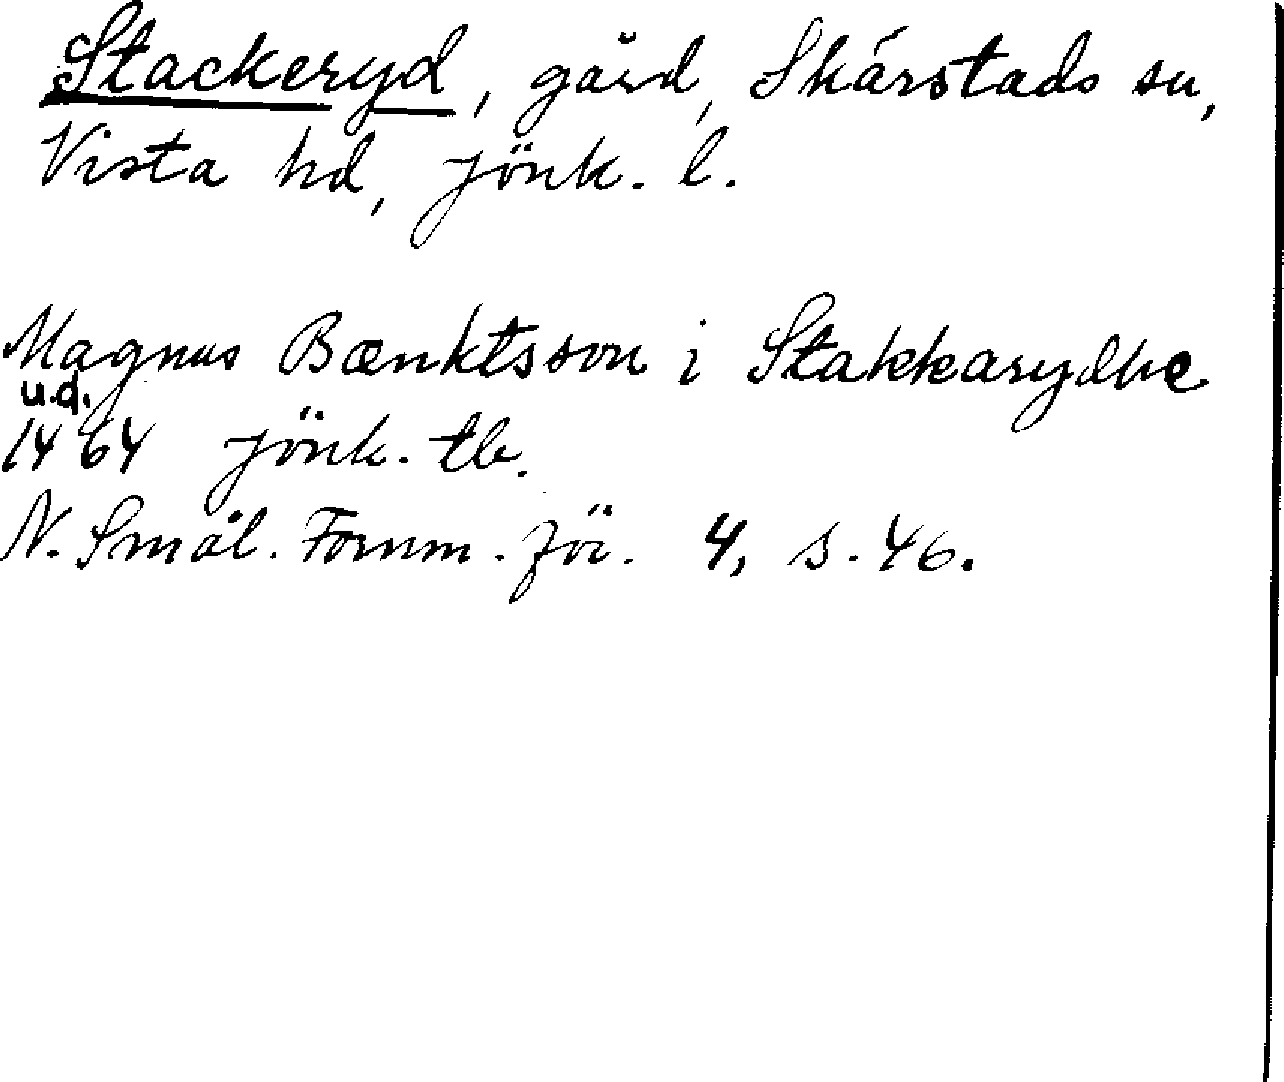 Stackeryd, gård, Skärstads sn,
Vista hd, Jönk. l.
Magnus Bænktsson i Stakkarydhe
u.d.
1464 Jönk. tb.
N. Smål. Fornm. för. 4, s. 46.